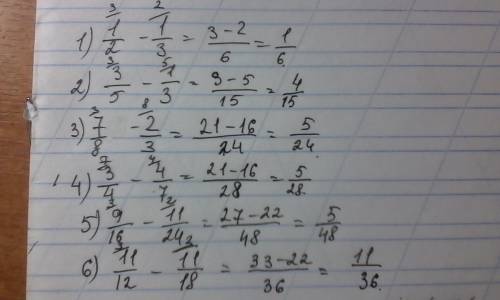 1) 1/2 ³ - 1/3 ² = (3-2)/6 = 1/6
2) 3/5 ³ - 1/3 ⁵ = (9-5)/15 = 4/15
3) 7/8 ³ - 2/3 ⁸ = (21-16)/24 = 5/24.
4) 3/4 ⁷ - 4/7 ⁴ = (21-16)/28 = 5/28.
5) 9/16 ³ - 11/24 ² = (27-22)/48 = 5/48
6) 11/12 ³ - 11/18 ² = (33-22)/36 = 11/36.